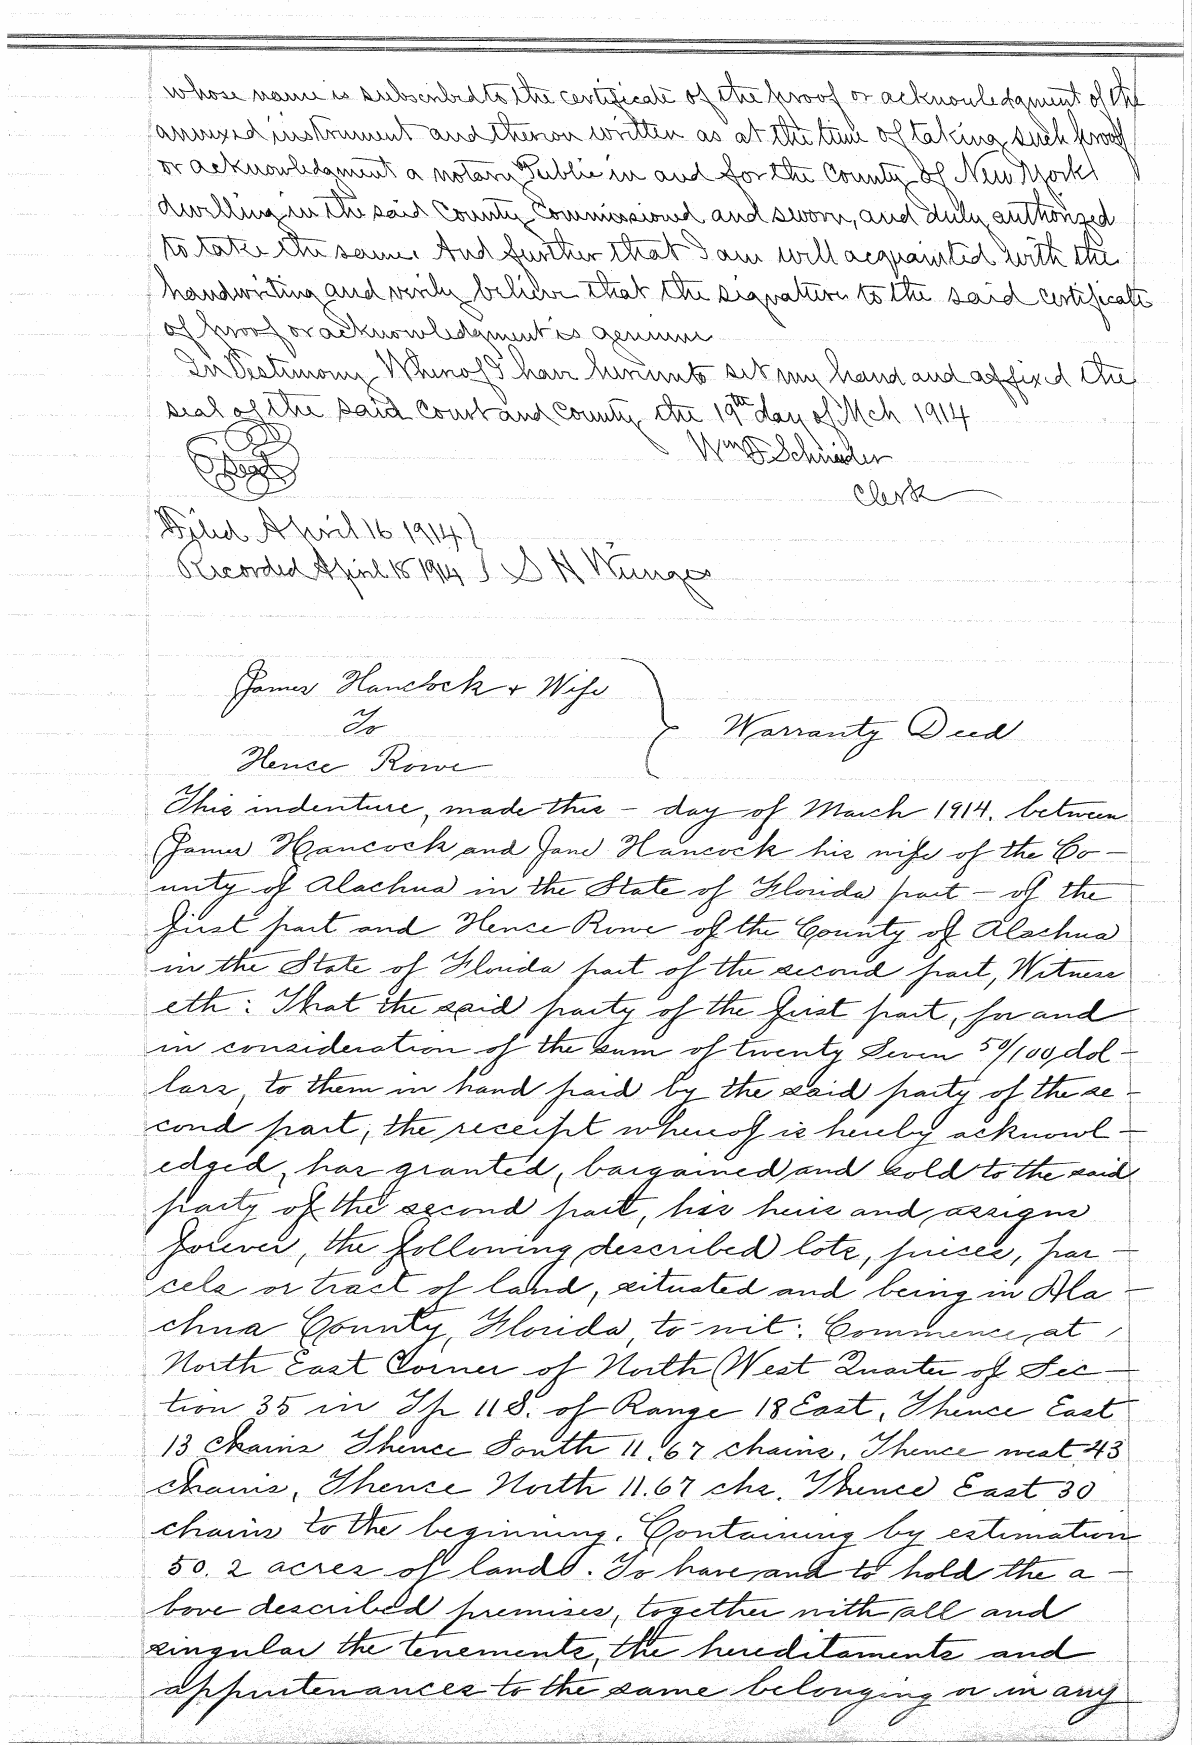 whose name is subscribed to the certificate of the proof or acknowledgment of the
annexed instrument and thereon written as at the time of taking such proof
or acknowledgment a notary Public in and for the County of New York
dwelling in the said County Commissioned and sworn, and duly authorized
to take the same. And further that I am well acquainted with the
handwriting and verily believe that the signature to the said certificate
of proof or acknowledgment is genuine
In Testimony Whereof I have hereunto set my hand and affixed the
seal of the said Court and County the 19th day of Mch 1914
Wm F Schneider
Seal
Clerk
Filed April 16 1914
Recorded April 18 1914 } S H Wienges
James Hancock & Wife
To
Warranty Deed
Hence Rowe
This indenture, made this - day of March 1914. between
James Hancock and Jane Hancock his wife of the Co-
unty of Alachua in the State of Florida part - of the
first part and Hence Rowe of the County of Alachua
in the State of Florida part of the second part, Witness
eth: That the said party of the first part, for and
in consideration of the sum of twenty Seven 50/100 dol-
lars, to them in hand paid by the said party of the se-
cond part, the receipt whereof is hereby acknowl-
edged, has granted, bargained and sold to the said
party of the second part, his heirs and assigns
forever, the following described lots, pieces, par-
cels or tract of land, situated and being in Ala-
chua County, Florida, to-wit: Commence at
North East Corner of North West Quarter of Sec-
tion 35 in Tp 11 S. of Range 18 East, Thence East
13 chains Thence South 11.67 chains, Thence west 43
chains, Thence North 11.67 chs. Thence East 30
chains to the beginning. Containing by estimation
50.2 acres of land. To have and to hold the a-
bove described premises, together with all and
singular the tenements, the hereditaments and
appurtenances to the same belonging or in any